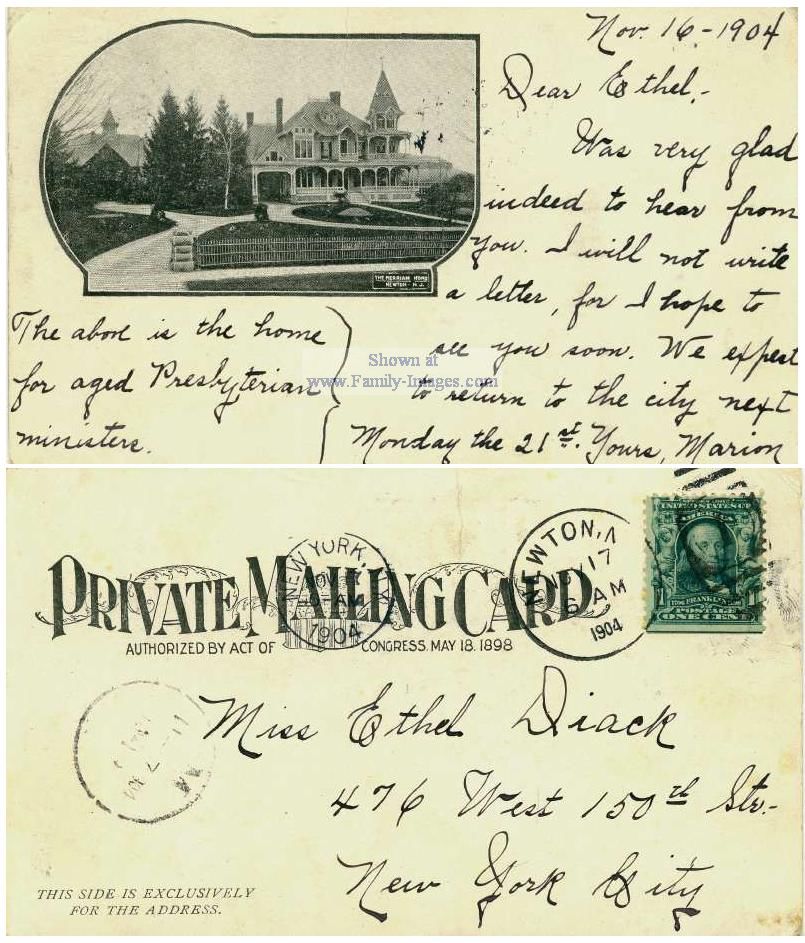 Nov. 16 - 1904
Dear Ethel,-
Was very glad
indeed to hear from
you. I will not write
a letter, for I hope to
see you soon. We expect
to return to the city next
Monday the 21st. Yours, Marion
THE MERRIAM HOME
NEWTON - N.J.
The above is the home
for aged Presbyterian
ministers.
Shown at
www.Family-Images.com
PRIVATE MAILING CARD
AUTHORIZED BY ACT OF CONGRESS. MAY 18. 1898
NEW YORK, N.Y.
NOV 17
AM
1904
NEWTON, N
NOV 17
6 AM
1904
UNITED STATES OF
AMERICA
FRANKLIN
POSTAGE
ONE CENT
Miss Ethel Diack
476 West 150th Str.-
New York City
THIS SIDE IS EXCLUSIVELY
FOR THE ADDRESS.